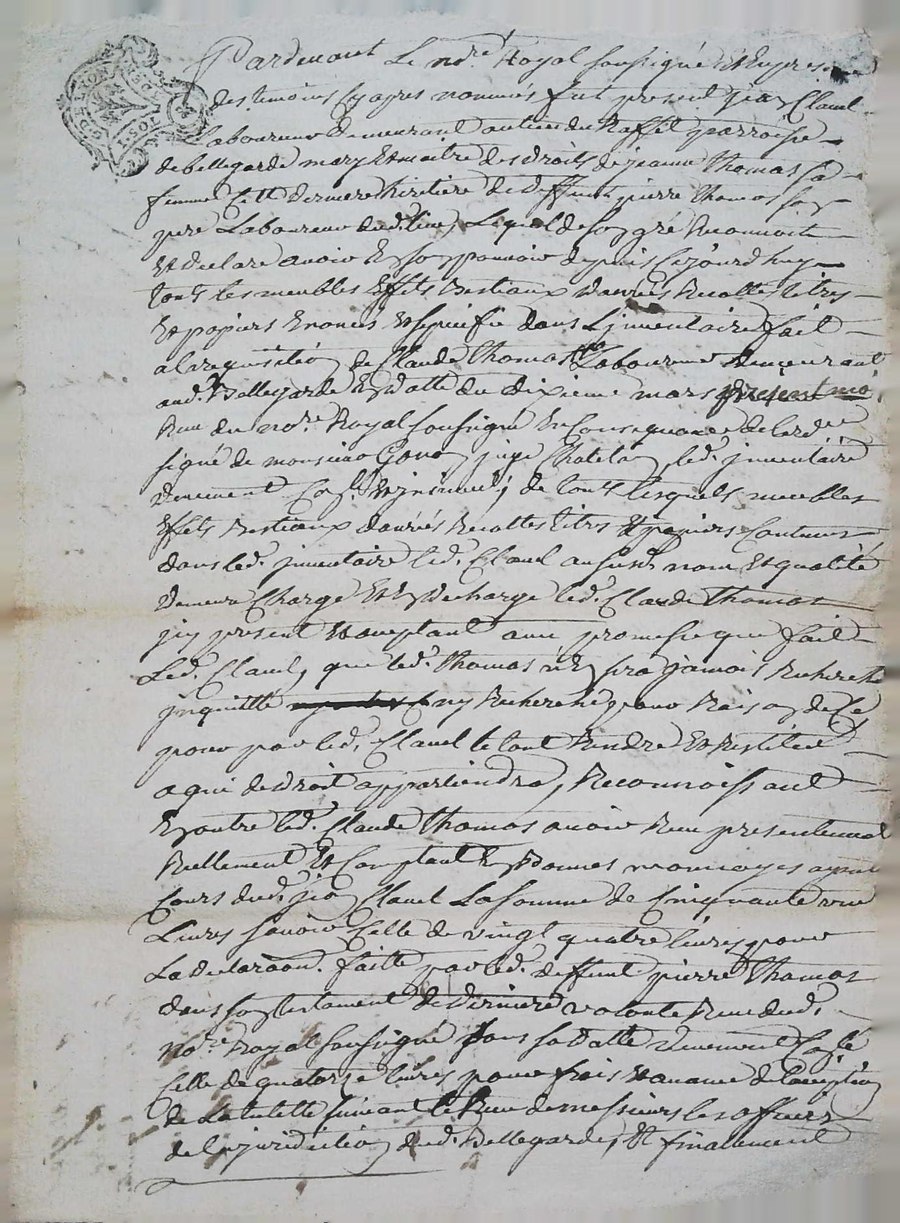 Pardevant Le no.re Royal soussigné Et En presence
des temoins Cy apres nommés fut present jean Claud
Laboureur demeurant au lieu du Raffet parroisse
de bellegarde mary Et maitre des droits de jeanne Thomas sa
femme Cette derniere hiritiere de deffunt pierre Thomas son
pere Laboureur dud. lieu, Lequel de son gré Reconnoit
Et declare avoir En son pouvoir depuis Cejourd'huy
tous les meubles Effets Bestiaux danrées Recoltes titres
Et papiers Enoncés Et specifié dans L'jnventaire fait
a la requisition de Claude Thomas Laboureur demeurant
aud. Bellegarde En datte du dixieme mars present moi
Reçu du no.re Royal soussigné En Consequance de lordce
signé de monsieur juge Chatelain, led. jnventaire
duement Con.lé Et jnsinué, de tous lesquels meubles
Effets Bestiaux danrées Recoltes titres Et papiers Contenus
dans led. jnventaire led. Claud au susd. nom Et qualité
demeure Chargé Et En decharge led. Claude Thomas
jcy present Et aceptant avec promesse que fait
Led. Claud, que led. Thomas n'En sera jamais Recherché
jnquietté ny Recherché pour Raison de Ce
pour par led. Claud le tout Rendre Et Restituer
a qui de droit appartiendra, Reconnoissant
En outre led. Claude Thomas avoir Reçu presentement
Reellement Et Comptant En Bonnes monnoyes ayant
Cours dud. jean Claud La somme de Cinquante une
Livres savoir Celle de vingt quatre livres pour
La declaraon. faitte par led. deffunt pierre Thomas
dans son testament de derniere volonté Reçu dud.
no.re Royal soussigné sous sa datte duement Con.lé
Celle de quatorze livres pour frais Et avance de Laception
de La tutelle suivant le Reçu de messieurs les officiers
de la juridiction dud. Bellegarde, Et finallement